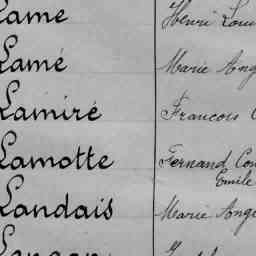 Lame Henri Loui
Lamé Marie Ang
Lamiré Francois
Lamotte Fernand Con
Emile
Landais Marie Ange